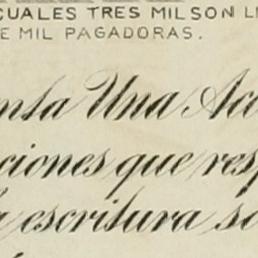 CUALES TRES MIL SON LI
E MIL PAGADORAS.
enta Una Acc
ciones que resp
a escritura so